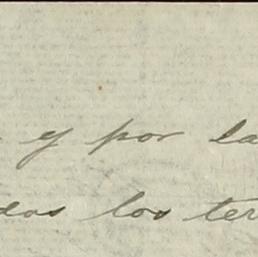 y por la
dos los ter